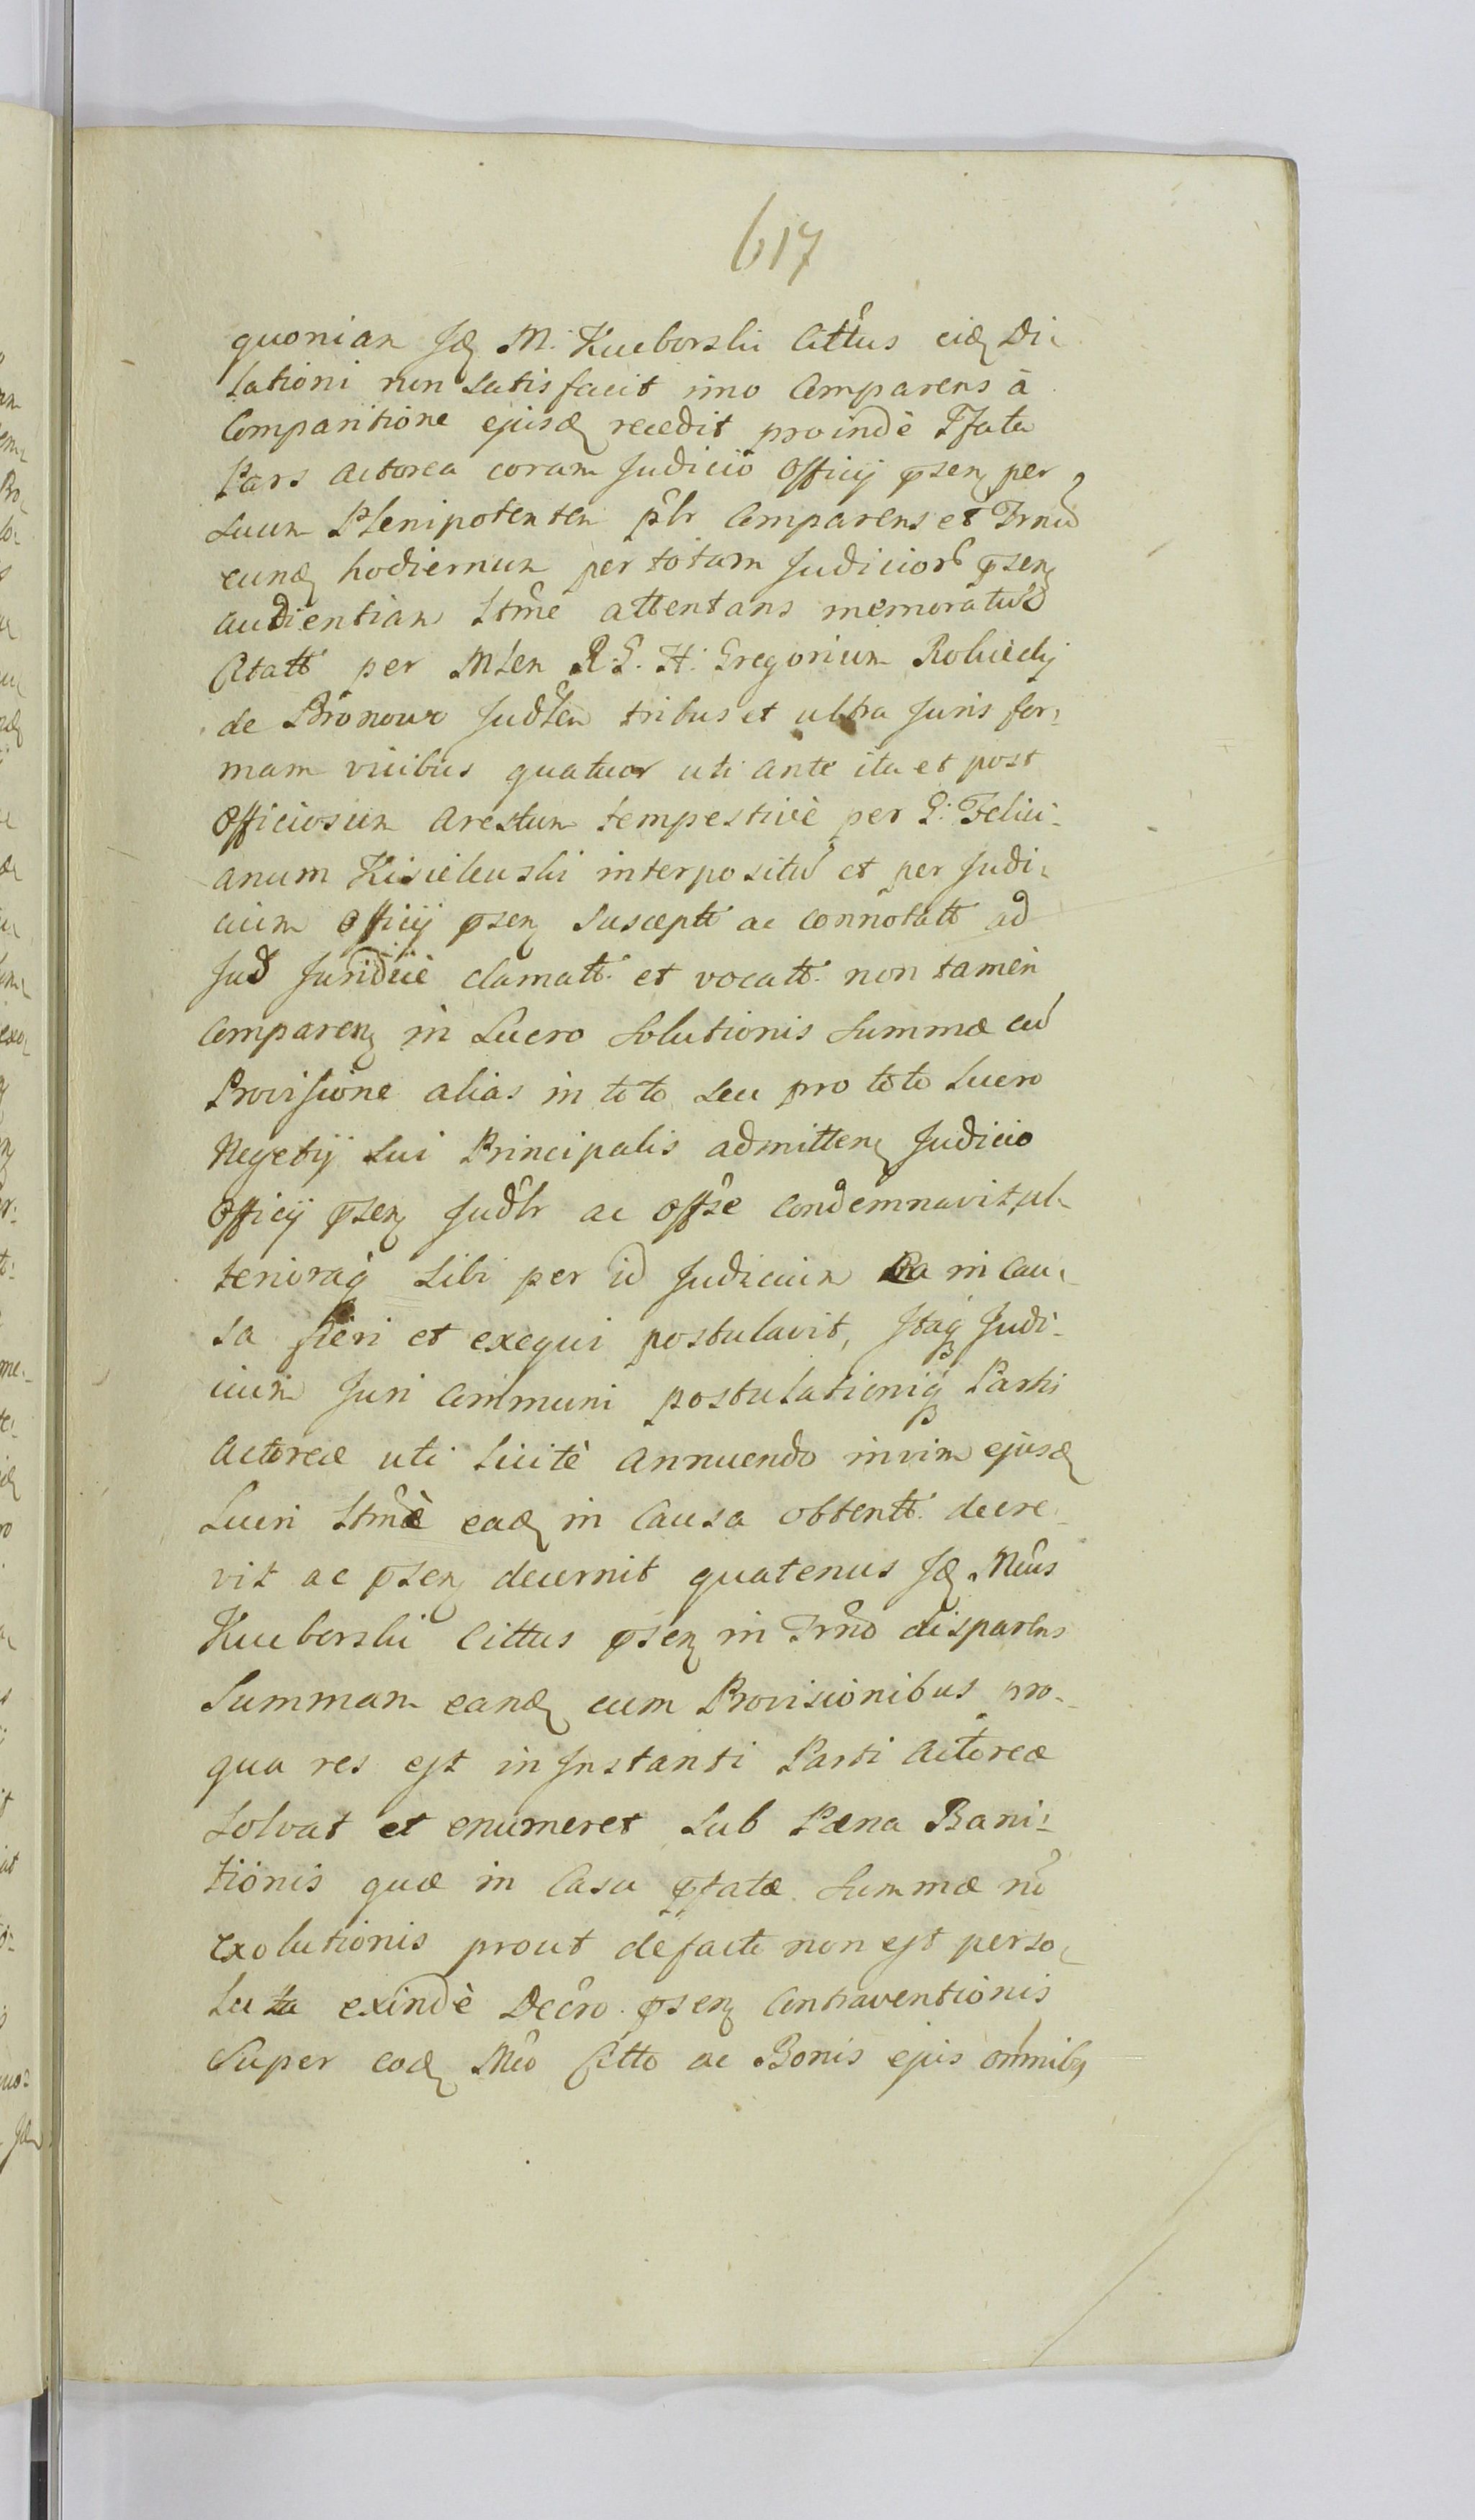 617
quoniam Jd M. Kucborski Cittus eid Di-
lationi non satisfacit imo Comparens à
Comparitione ejusd recedit proindè Pfata
Pars actorea coram Judicio Officij psen per
suum Plenipotenten plr Comparens et Trnu
eund hodiernum per totam Judicior psen
audientiam Stme attentans memoratu
Citatt per Mlen R: G. H: Gregorium
de Bronow Judlen tribus et ultra Juris for-
mam vicibus quatuor uti ante ita et post
Officiosum arestum tempestivè per G: Felici-
anum Kisielewski interpositu et per Judi-
cium Officij psen suscept ac connotatt ad
Jud Juridicè clamatt. et vocatt. non tamen
Comparen in Lucro Solutionis Summæ cu
Provisione alias in toto seu pro toto Lucro
Negotij sui Principalis admitten Judicio
Officij psen Judlr ac Offse Condemnavit, ul-
terioraq sibi per id Judicium ea in Cau-
sa fieri et exequi postulavit, Itaq Judi-
cium Juri Communi postulationiq Partis
actoreæ uti Licitè annuendo in vim ejusd
Lucri Stmè ead in Causa obtentt. decre-
vit ac psen decernit quatenus Jd Mcus
Kucborski Cittus psen in Trno disparens
Summam eand cum Provisionibus pro-
qua res est in Instanti Parti actoreæ
solvat et enumeret sub Pæna Bani-
tionis quæ in Casu pfatæ Summæ no
exolutionis prout de facto non est perso-
luta exindè Decro psen Contraventionis
Super eod Mco Citto ac Bonis ejus omnibq